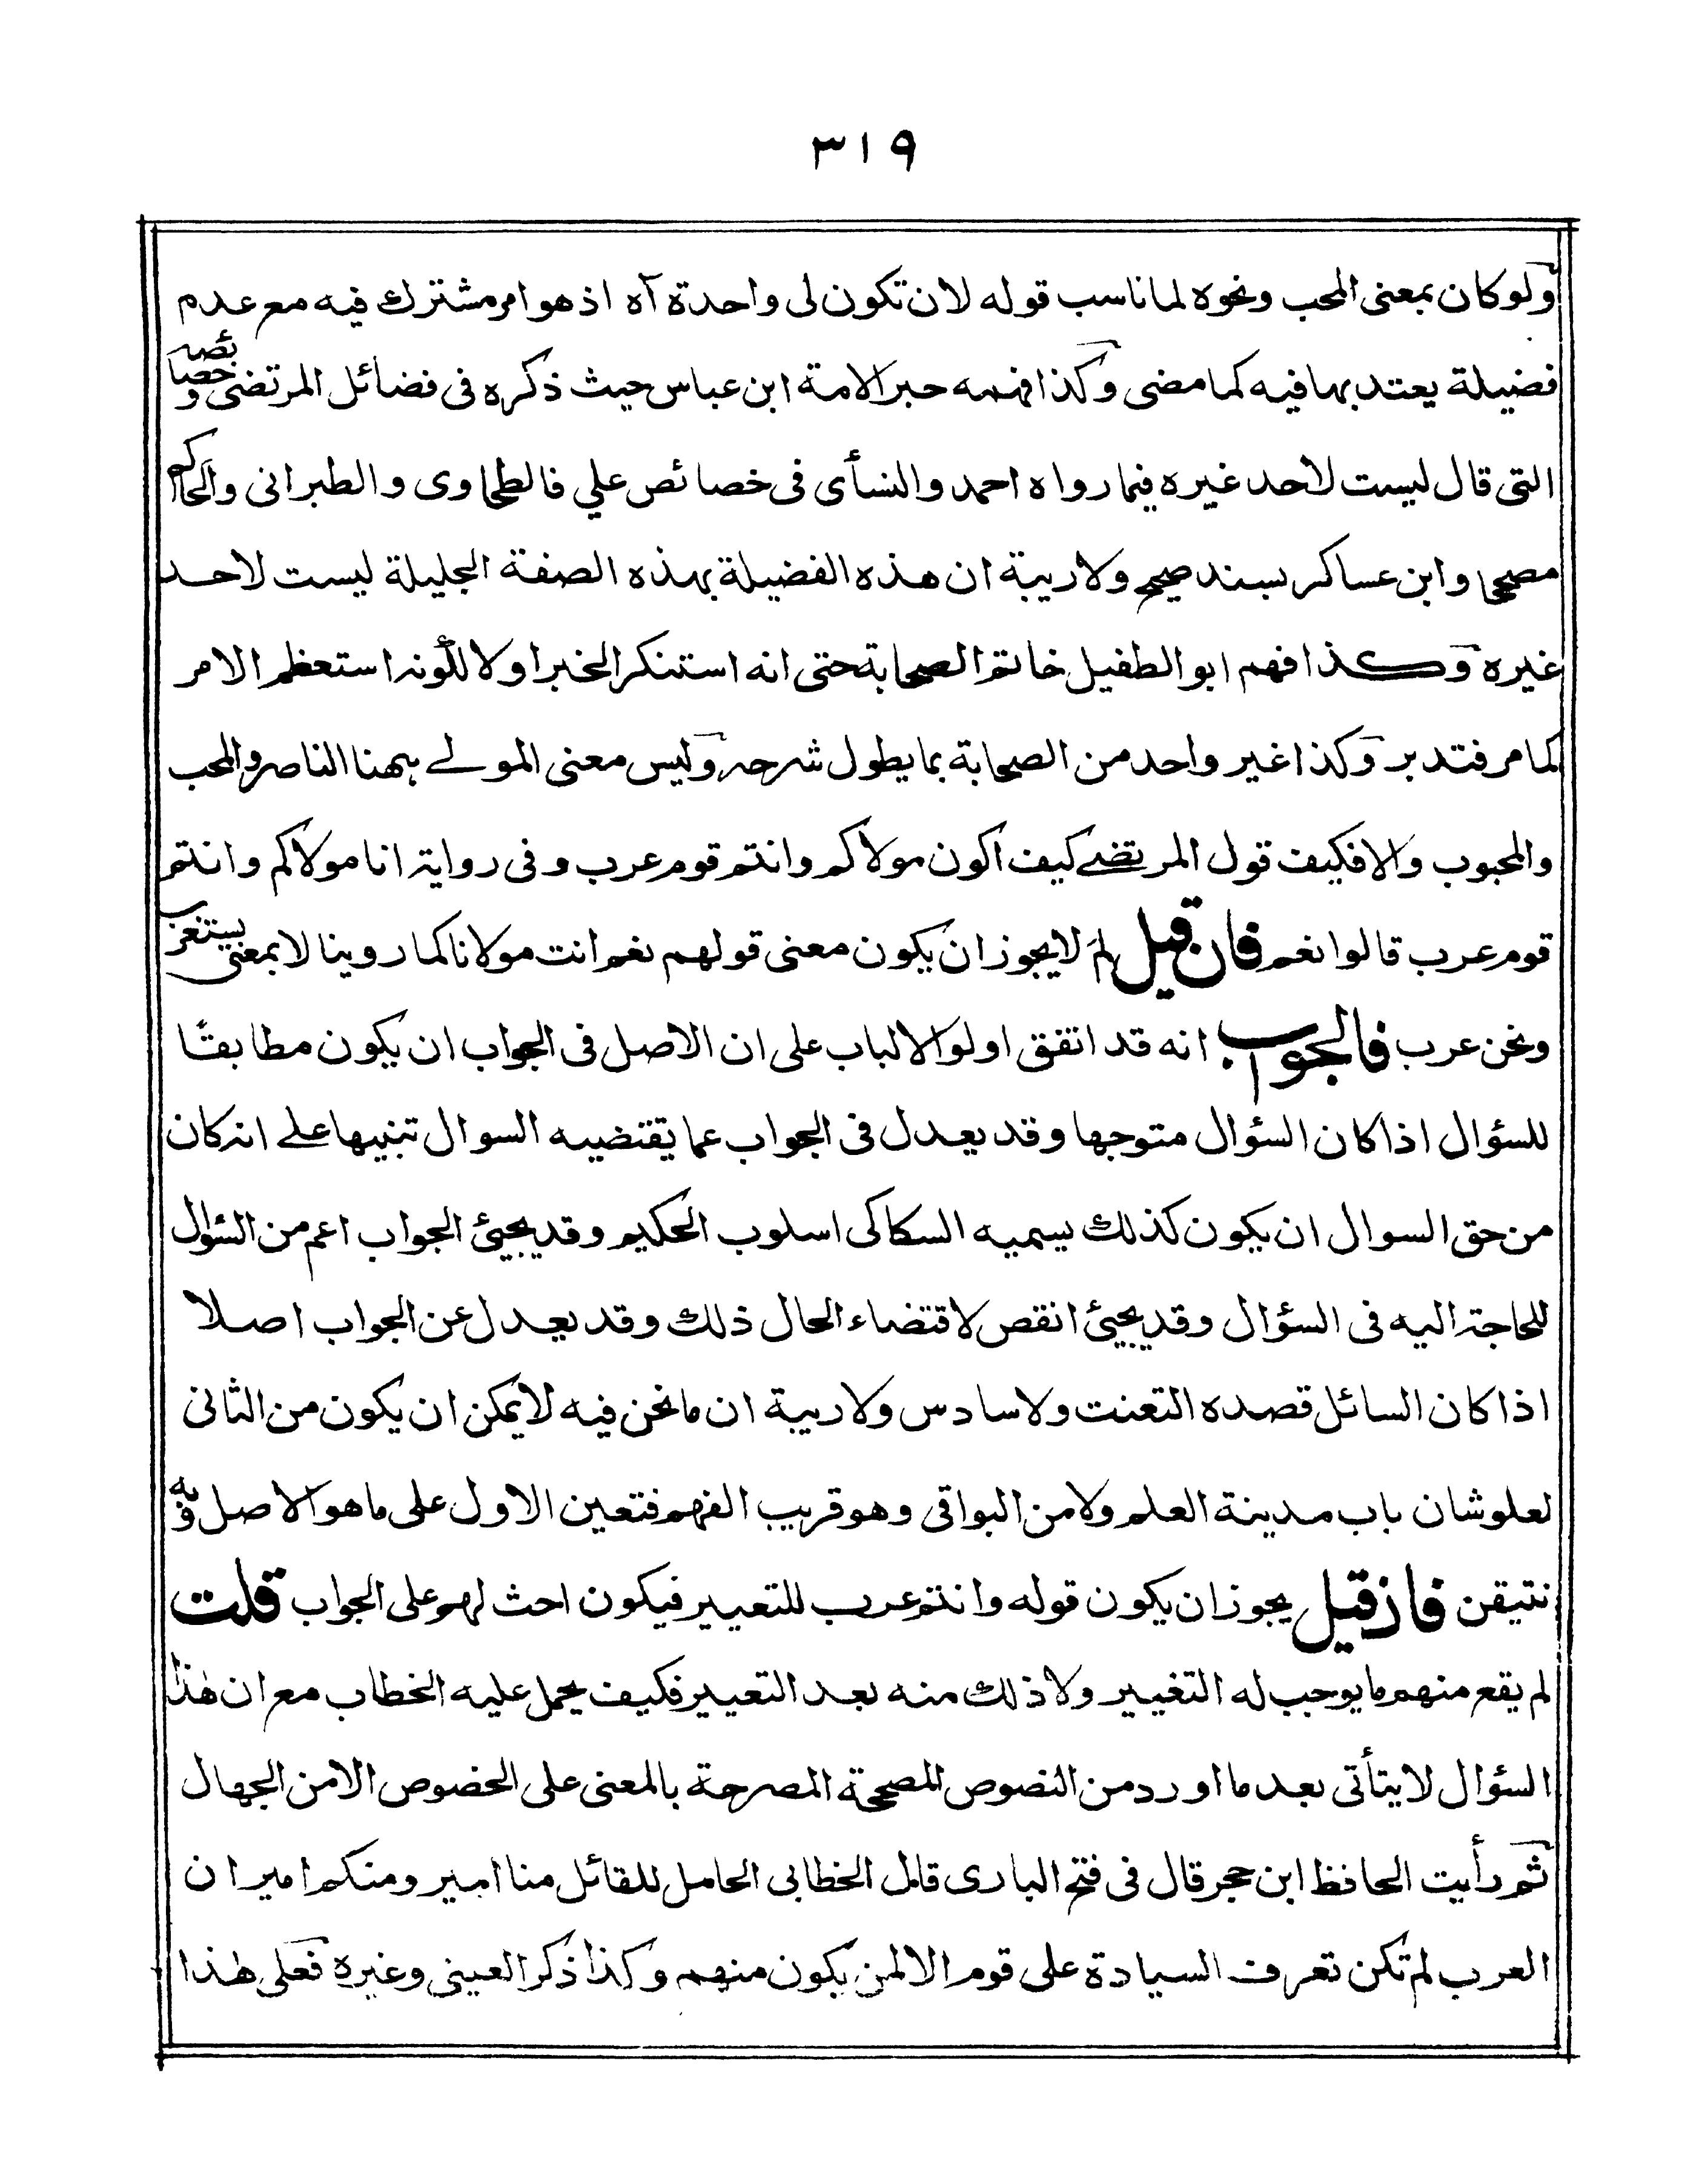 ٣١٩
ولو كان بمعنى المحب ونحوه لما ناسب قوله لان تكون لى واحدة آه اذ هو امر مشترك فيه مع عدم
فضيلة يعتد بها فيه كما مضى وكذا فهمه حبر الامة ابن عباس حيث ذكره فى فضائل المرتضى وخصائصه
التى قال ليست لاحد غيره فيما رواه احمد والنسأى فى خصائص علي فالطحاوى والطبرانى والحاكم
مصححا وابن عساكر بسند صحيح ولا ريبة ان هذه الفضيلة بهذه الصفة الجليلة ليست لاحد
غيره وكذا فهم ابو الطفيل خاتم الصحابة حتى انه استنكر الخبر اولا لكونه استعظم الامر
كما مر فتدبر وكذا غير واحد من الصحابة بما يطول شرحه وليس معنى المولے بهنا الناصر والمحب
والمحبوب والا فكيف قول المرتضے كيف اكون مولاكم وانتم قوم عرب وفى رواية انا مولاكم وانتم
قوم عرب قالوا نعم فان قيل لم لا يجوز ان يكون معنى قولهم نعم انت مولانا كما روينا لا بمعنى يستغرب
ونحن عرب فالجواب انه قد اتفق اولو الالباب على ان الاصل فى الجواب ان يكون مطابقًا
للسؤال اذا كان السؤال متوجها وقد يعدل فى الجواب عما يقتضيه السوال تنبيها علے انه كان
من حق السوال ان يكون كذلك يسميه السكاكى اسلوب الحكيم وقد يجيئ الجواب اعم من السؤال
للحاجة اليه فى السؤال وقد يجيئ انقص لاقتضاء الحال ذلك وقد يعدل عن الجواب اصلا
اذا كان السائل قصده التعنت ولا سادس ولا ريبة ان ما نحن فيه لا يمكن ان يكون من الثانى
لعلو شان باب مدينة العلم ولا من البواقى وهو قريب الفهم فتعين الاول على ما هو الاصل وبه
نتيقن فان قيل يجوز ان يكون قوله وانتم عرب للتعيير فيكون احث لهم على الجواب قلت
لم يقع منهم ما يوجب له التغيير ولا ذلك منه بعد التعيير فكيف يحمل عليه الخطاب مع ان هذا
السؤال لا يتأتى بعد ما اورد من النصوص المصححة المصرحة بالمعنى على الخصوص الا من الجهال
ثم رأيت الحافظ ابن حجر قال فى فتح البارى قال الخطابى الحامل للقائل منا امير ومنكم امير ان
العرب لم تكن تعرف السيادة على قوم الا لمن يكون منهم وكذا ذكر العينى وغيره فعلى هذا